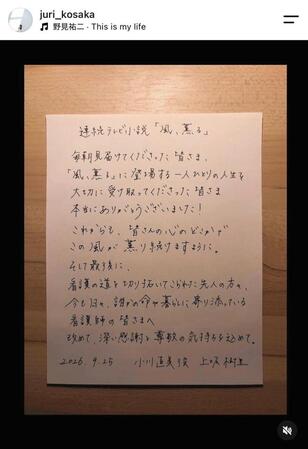 juri_kosaka
野見祐二・This is my life
連続テレビ小説「風、薫る」
毎朝見届けてくださった皆さま、
「風、薫る」に登場する一人ひとりの人生を
大切に受け取ってくださった皆さま
本当にありがとうございました！
これからも、皆さんの心のどこかで
この風が薫り続けますように。
そして最後に、
看護の道を切り拓いてこられた先人の方々、
今も日々、誰かの命や暮らしに寄り添っている
看護師の皆さまへ
改めて、深い感謝と尊敬の気持ちを込めて。
2026. 9. 25 小川直美役 上坂樹里